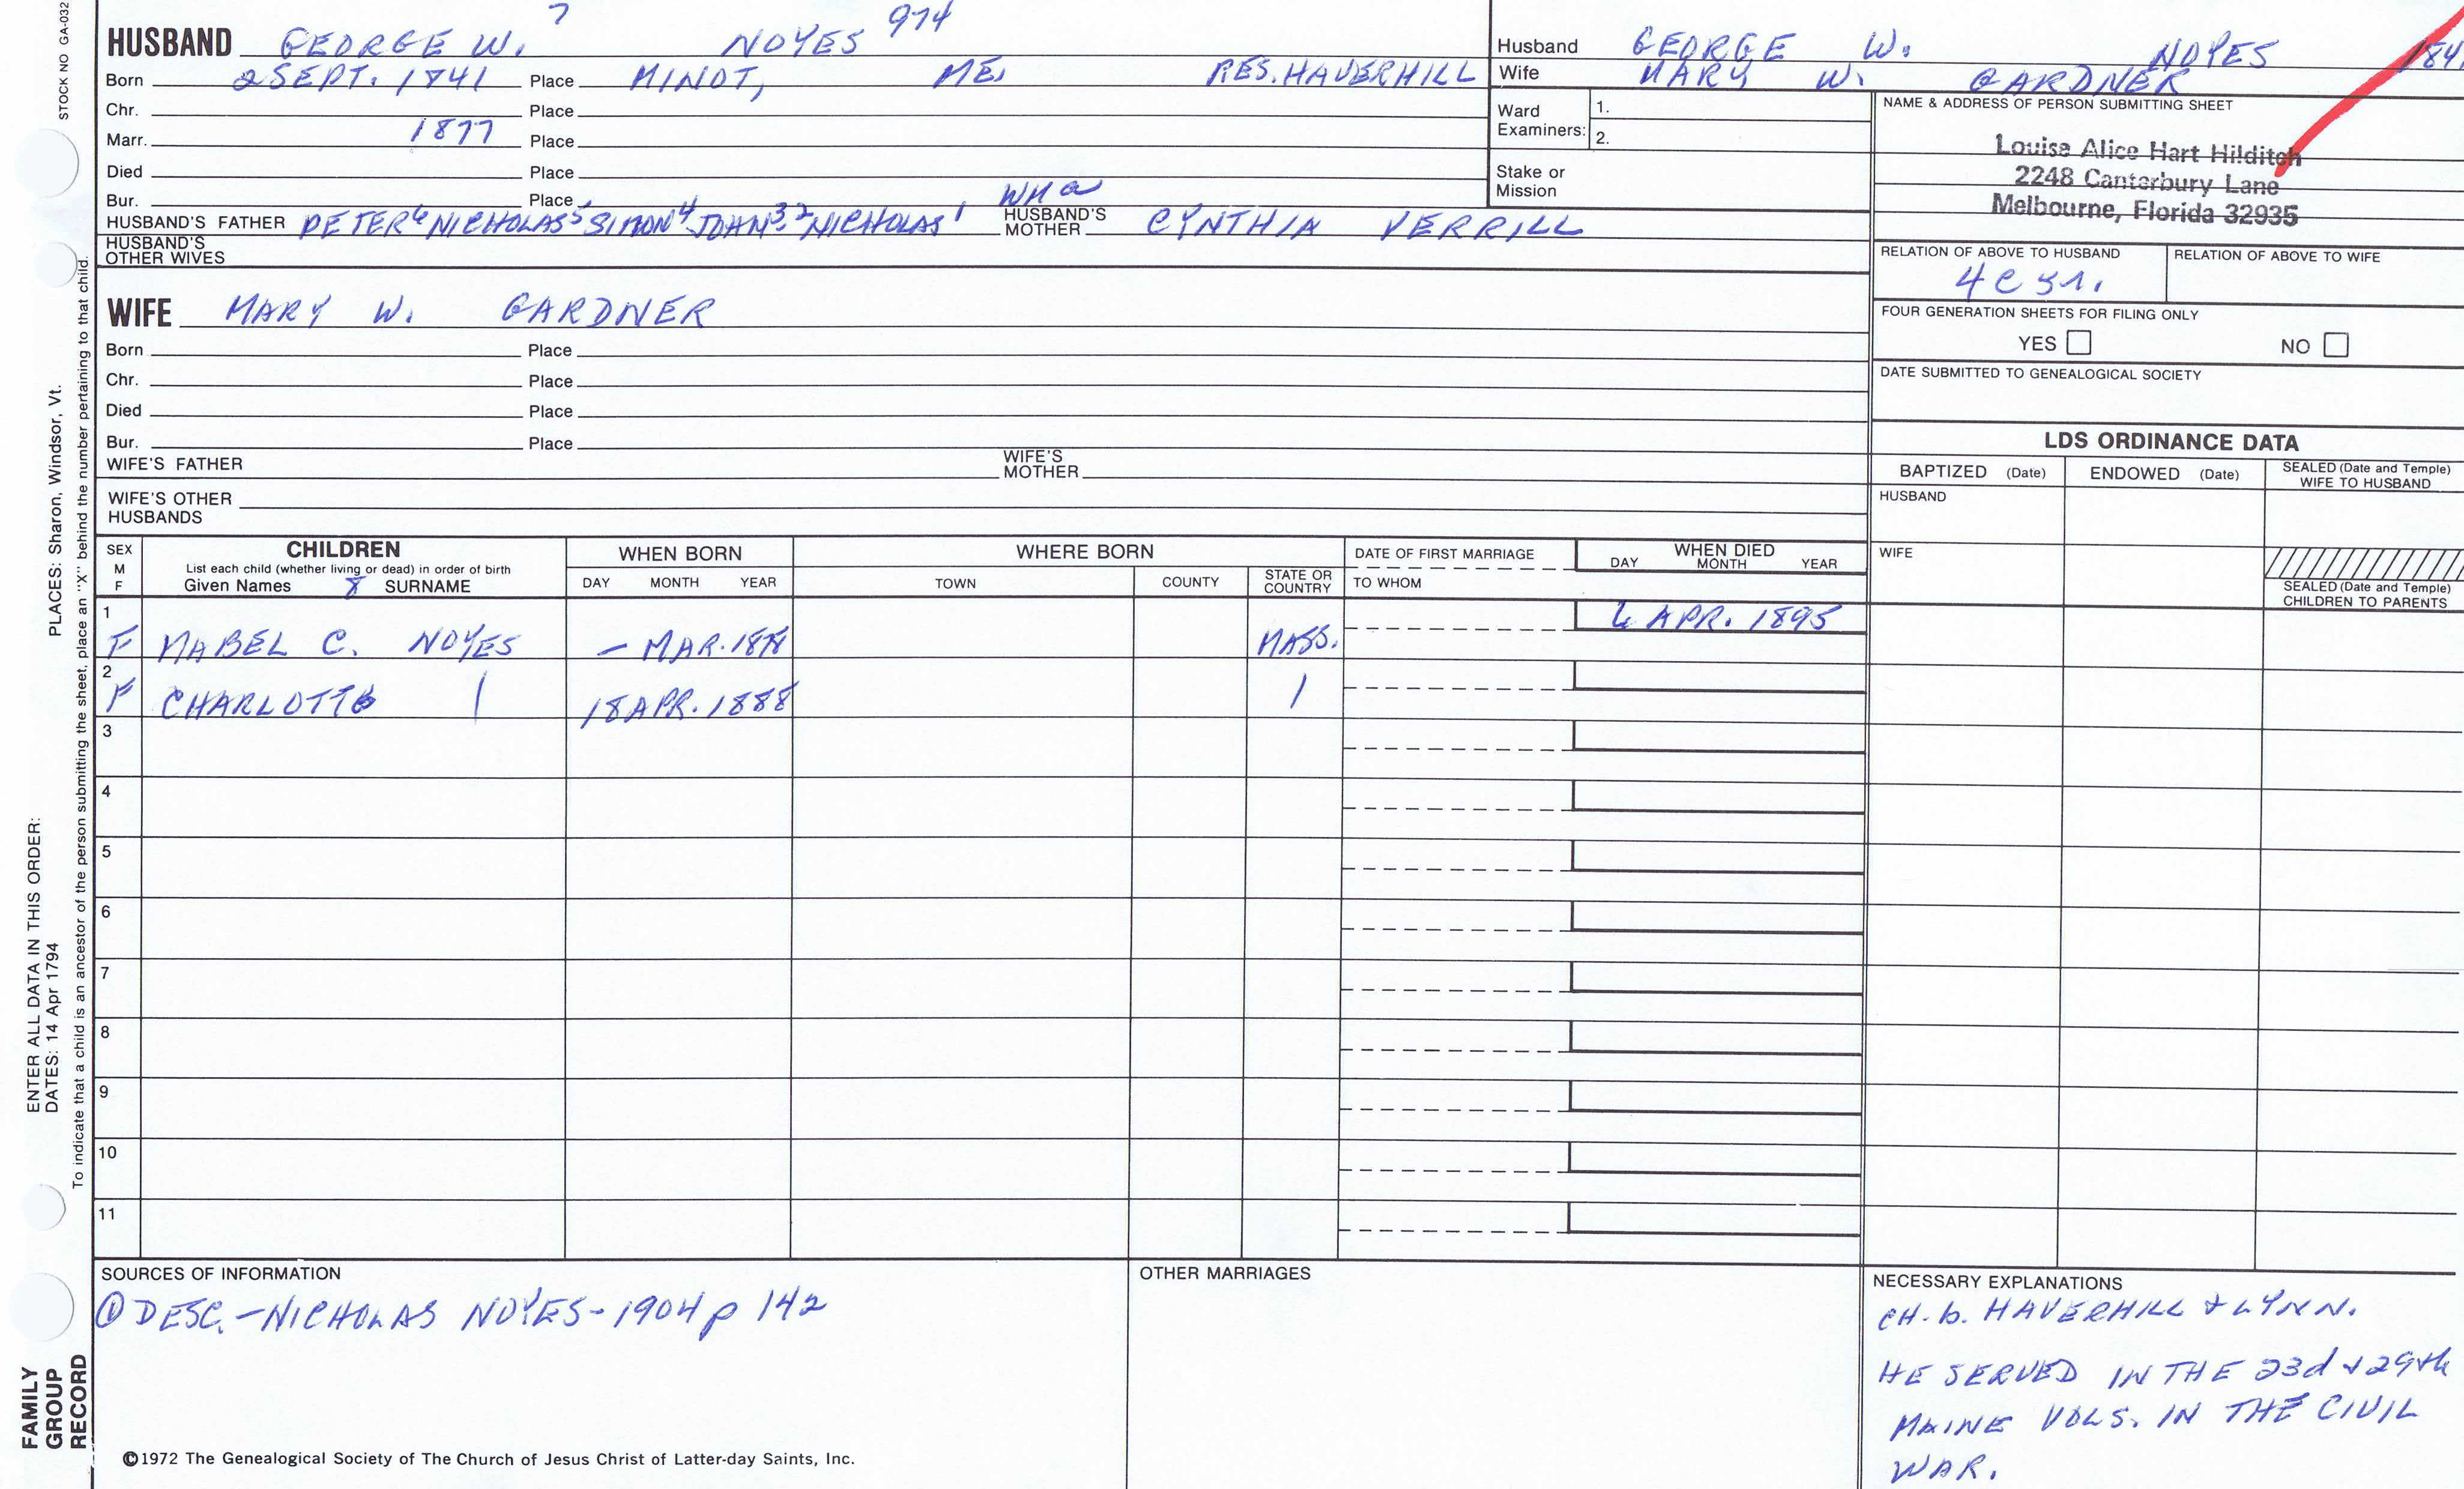 STOCK NO GA-032
PLACES: Sharon, Windsor, Vt.
ENTER ALL DATA IN THIS ORDER:
DATES: 14 Apr 1794
To indicate that a child is an ancestor of the person submitting the sheet, place an "X" behind the number pertaining to that child.
FAMILY
GROUP
RECORD
7 974
HUSBAND GEORGE W. NOYES
Born 2 SEPT. 1841 Place MINOT, ME. RES. HAVERHILL
Chr. Place
Marr. 1877 Place
Died Place
Bur. Place
HUSBAND'S FATHER PETER6 NICHOLAS5 SIMON4 JOHN3,2 NICHOLAS1 HUSBAND'S MOTHER CYNTHIA VERRILL
HUSBAND'S
OTHER WIVES
WIFE MARY W. GARDNER
Born Place
Chr. Place
Died Place
Bur. Place
WIFE'S FATHER WIFE'S MOTHER
WIFE'S OTHER
HUSBANDS
Husband GEORGE W. NOYES 184
Wife MARY W. GARDNER
Ward
Examiners:
1.
2.
Stake or
Mission
NAME & ADDRESS OF PERSON SUBMITTING SHEET
Louise Alice Hart Hilditch
2248 Canterbury Lane
Melbourne, Florida 32935
RELATION OF ABOVE TO HUSBAND RELATION OF ABOVE TO WIFE
FOUR GENERATION SHEETS FOR FILING ONLY
YES NO
DATE SUBMITTED TO GENEALOGICAL SOCIETY
LDS ORDINANCE DATA
BAPTIZED (Date) ENDOWED (Date) SEALED (Date and Temple) WIFE TO HUSBAND
HUSBAND
WIFE
SEALED (Date and Temple)
CHILDREN TO PARENTS
SEX
M
F
CHILDREN
List each child (whether living or dead) in order of birth
Given Names 8 SURNAME
WHEN BORN
DAY MONTH YEAR
WHERE BORN
TOWN COUNTY STATE OR COUNTRY
DATE OF FIRST MARRIAGE
TO WHOM
WHEN DIED
DAY MONTH YEAR
1 6 APR. 1895
F MABEL C. NOYES — MAR. 1878 MASS.
2
F CHARLOTTE | 18 APR. 1888 |
3
4
5
6
7
8
9
10
11
SOURCES OF INFORMATION
① DESC. - NICHOLAS NOYES - 1904 p 142
OTHER MARRIAGES
NECESSARY EXPLANATIONS
CH. b. HAVERHILL & LYNN.
HE SERVED IN THE 23d & 29th
MAINE VOLS. IN THE CIVIL
WAR.
©1972 The Genealogical Society of The Church of Jesus Christ of Latter-day Saints, Inc.